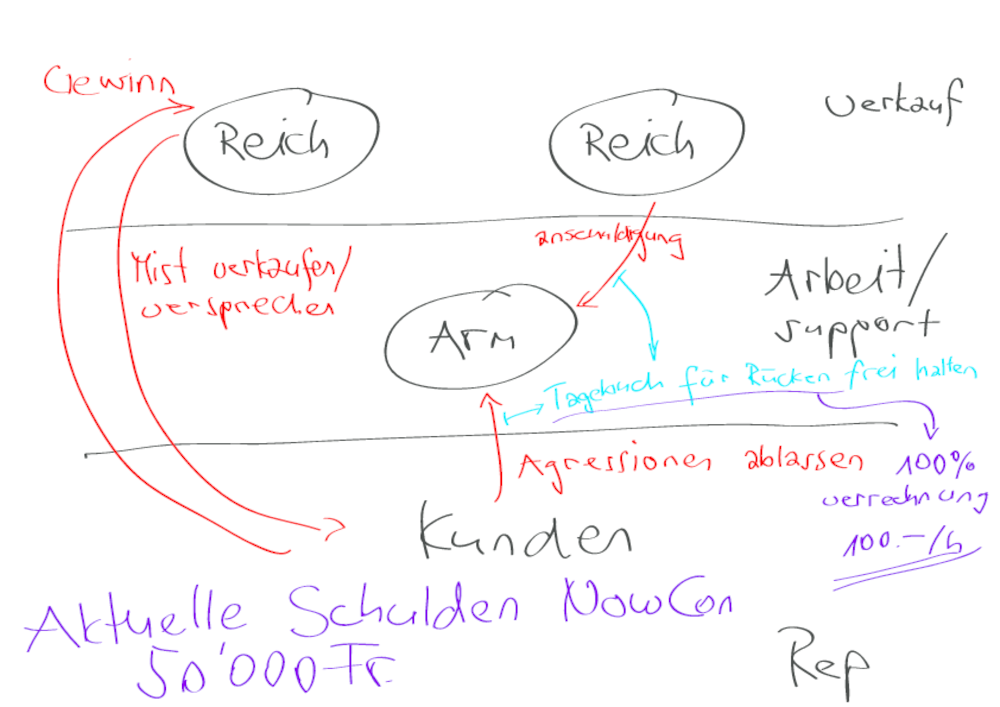 Gewinn
Reich
Reich
Verkauf
Mist verkaufen/
versprechen
anschuldigung
Arbeit/
support
Arm
Tagebuch für Rücken frei halten
Agressionen ablassen
100%
verrechnung
100.-/h
Kunden
Aktuelle Schulden NowCon
50'000 Fr.
Rep